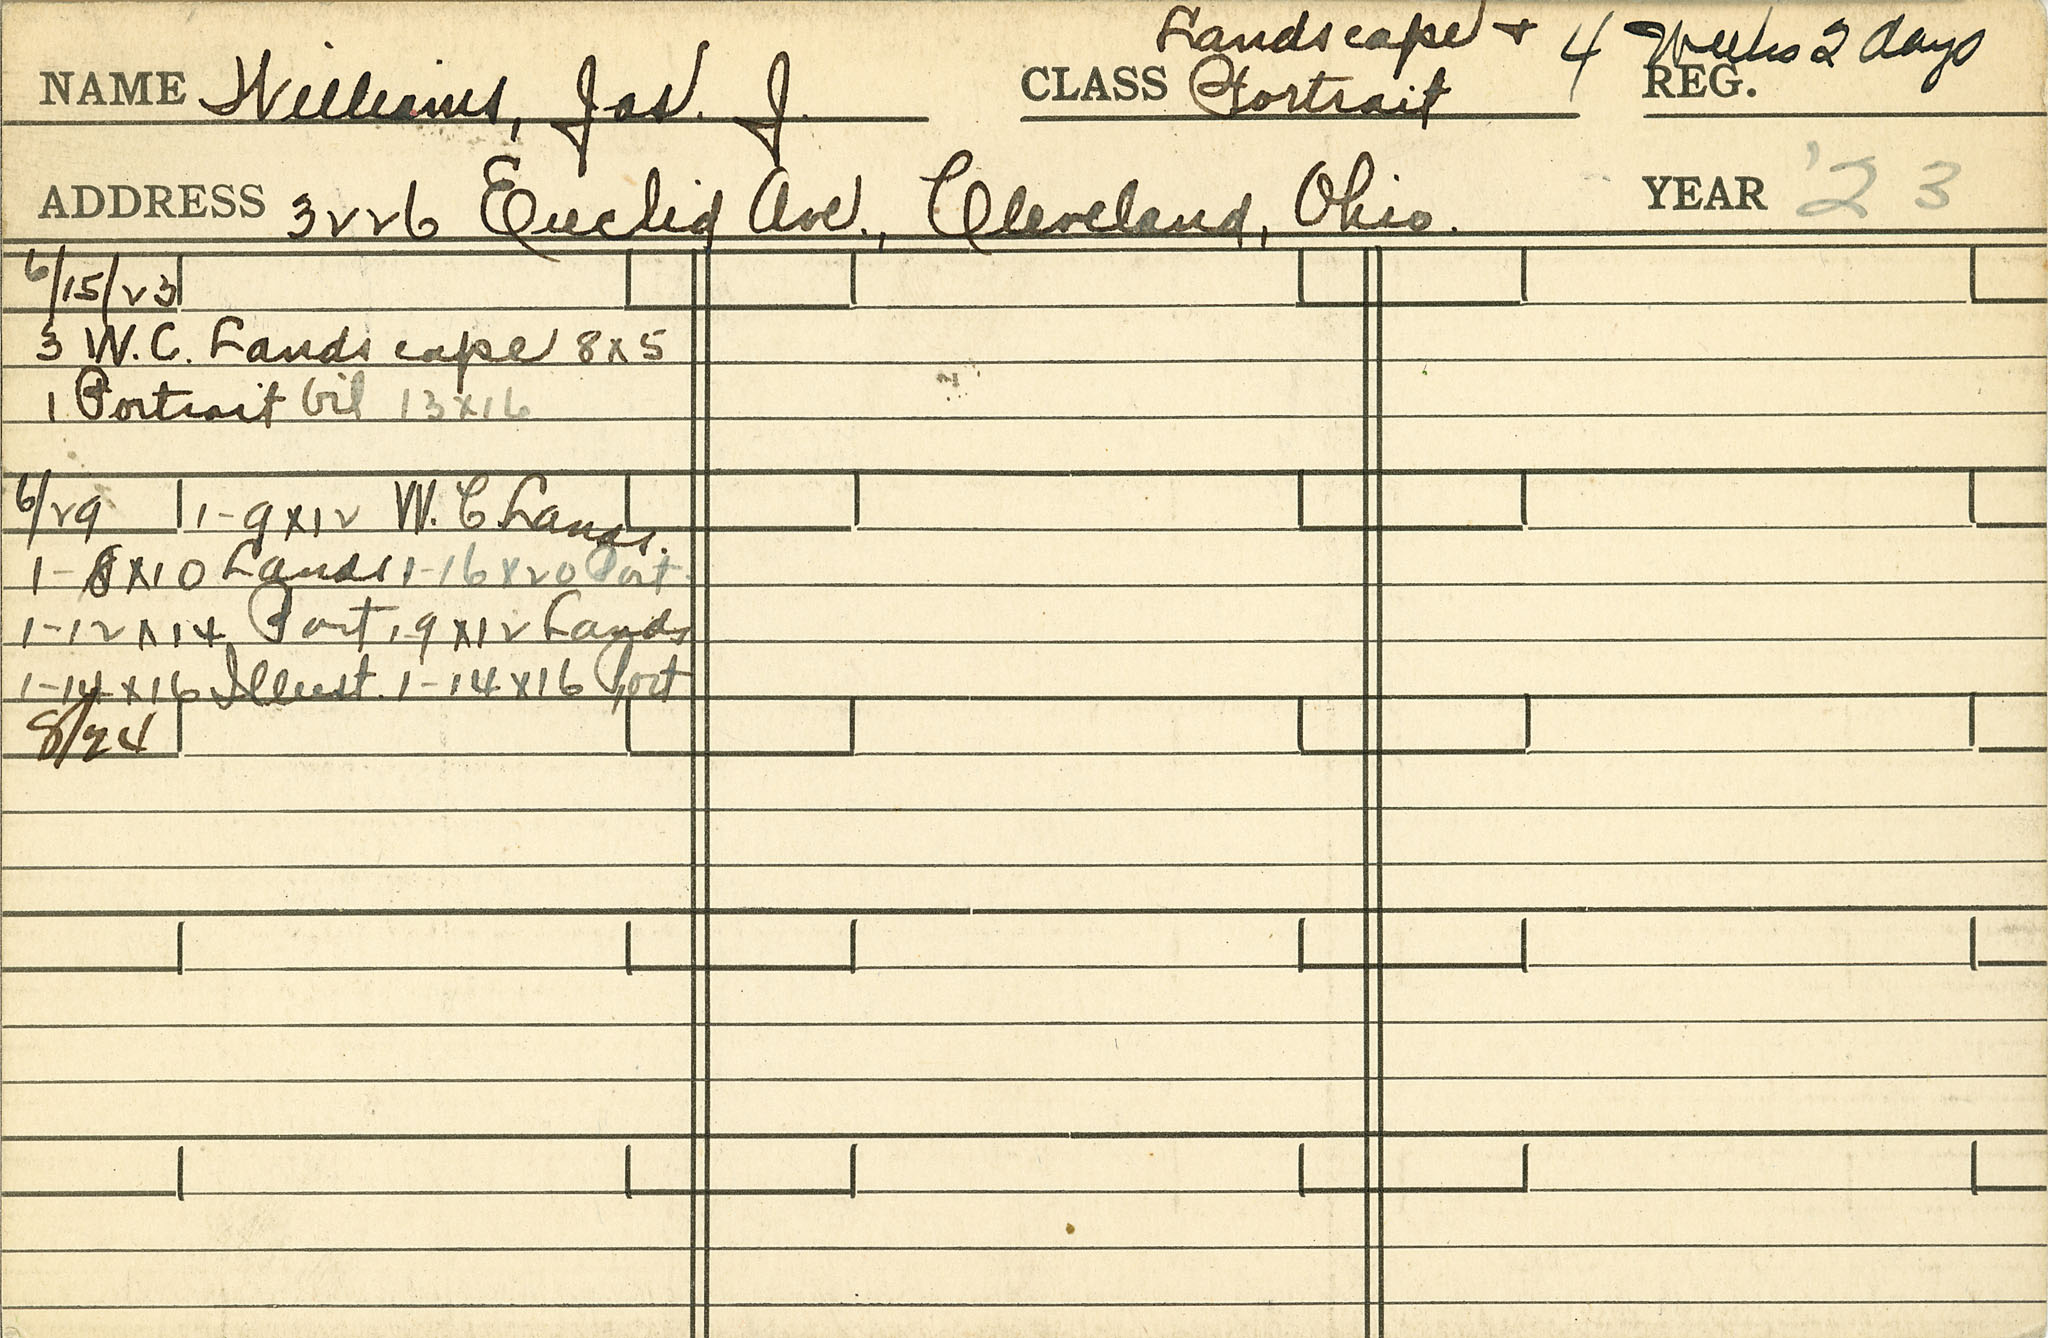 Landscape + 4 Weeks 2 days
NAME Williams, Jas. J. CLASS Portrait REG.
ADDRESS 3226 Euclid Ave., Cleveland, Ohio. YEAR '23
6/15/23
3 W.C. Landscape 8x5
1 Portrait Oil 13x16
6/29 1-9x12 W.C Lands.
1-8x10 Lands 1-16x20 Port.
1-12x14 Port, 1-9x12 Lands
1-14x16 Illust. 1-14x16 Port
8/24